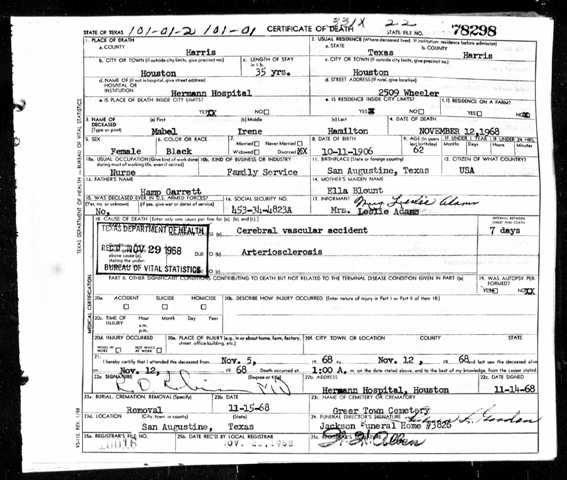 STATE OF TEXAS 101-01-2 101-01 CERTIFICATE OF DEATH 22 STATE FILE NO. 78298
1. PLACE OF DEATH
a. COUNTY
Harris
2. USUAL RESIDENCE (Where deceased lived. If institution: residence before admission)
a. STATE
Texas
b. COUNTY
Harris
b. CITY OR TOWN (If outside city limits, give precinct no.)
Houston
c. LENGTH OF STAY
in 1 b.
35 yrs.
c. CITY OR TOWN (If outside city limits, give precinct no.)
Houston
d. NAME OF (If not in hospital, give street address)
HOSPITAL OR
INSTITUTION
Hermann Hospital
d. STREET ADDRESS (If rural, give location)
2509 Wheeler
e. IS PLACE OF DEATH INSIDE CITY LIMITS?
YES XX NO
e. IS RESIDENCE INSIDE CITY LIMITS?
YES NO
f. IS RESIDENCE ON A FARM?
YES NO
3. NAME OF
DECEASED
(Type or print)
(a) First
Mabel
(b) Middle
Irene
(c) Last
Hamilton
4. DATE OF DEATH
NOVEMBER 12,1968
5. SEX
Female
6. COLOR OR RACE
Black
7. Married Never Married
Widowed Divorced
8. DATE OF BIRTH
10-11-1906
9. AGE (In years
last birthday)
62
IF UNDER 1 YEAR
Months Days
IF UNDER 24 HRS.
Hours Minutes
10a. USUAL OCCUPATION (Give kind of work done
during most of working life, even if retired)
Nurse
10b. KIND OF BUSINESS OR INDUSTRY
Family Service
11. BIRTHPLACE (State or foreign country)
San Augustine, Texas
12. CITIZEN OF WHAT COUNTRY?
USA
13. FATHER'S NAME
Hamp Garrett
14. MOTHER'S MAIDEN NAME
Ella Blount
15. WAS DECEASED EVER IN U.S. ARMED FORCES?
(Yes, no, or unknown) (If yes, give war or dates of service)
No.
16. SOCIAL SECURITY NO.
453-34-4823A
17. INFORMANT
Mrs. Leslie Adams
Mrs. Leslie Adams
18. CAUSE OF DEATH (Enter only one cause per line for (a), (b), and (c).)
INTERVAL BETWEEN
ONSET AND DEATH
Cerebral vascular accident
7 days
TEXAS DEPARTMENT OF HEALTH
REC'D NOV 29 1968
BUREAU OF VITAL STATISTICS
above cause (a),
stating the under-
DUE TO
Arteriosclerosis
PART II. OTHER SIGNIFICANT CONDITIONS CONTRIBUTING TO DEATH BUT NOT RELATED TO THE TERMINAL DISEASE CONDITION GIVEN IN PART I(a)
19. WAS AUTOPSY PERFORMED?
YES NO
20a. ACCIDENT SUICIDE HOMICIDE
20b. DESCRIBE HOW INJURY OCCURRED. (Enter nature of injury in Part I or Part II of Item 18)
20c. TIME OF
INJURY
Hour Month Day Year
a.m.
p.m.
20d. INJURY OCCURRED
WHILE AT WORK NOT WHILE AT WORK
20e. PLACE OF INJURY (e.g., in or about home, farm, factory,
street, office building, etc.)
20f. CITY, TOWN, OR LOCATION COUNTY STATE
21. I hereby certify that I attended the deceased from Nov. 5, 19 68 to Nov. 12, 19 68 and last saw the deceased alive
on Nov. 12, 19 68 Death occurred at 1:00 A. m. on the date stated above, and to the best of my knowledge, from the causes stated.
22a. SIGNATURE (Degree or title)
MD
22b. ADDRESS
Hermann Hospital, Houston
22c. DATE SIGNED
11-14-68
23a. BURIAL, CREMATION, REMOVAL (Specify)
Removal
23b. DATE
11-15-68
23c. NAME OF CEMETERY OR CREMATORY
Greer Town Cemetery
23d. LOCATION (City, town, or county) (State)
San Augustine, Texas
24. FUNERAL DIRECTOR'S SIGNATURE
Jackson Funeral Home #3826
25a. REGISTRAR'S FILE NO.
25b. DATE REC'D BY LOCAL REGISTRAR
25c. REGISTRAR'S SIGNATURE
TEXAS DEPARTMENT OF HEALTH — BUREAU OF VITAL STATISTICS
MEDICAL CERTIFICATION